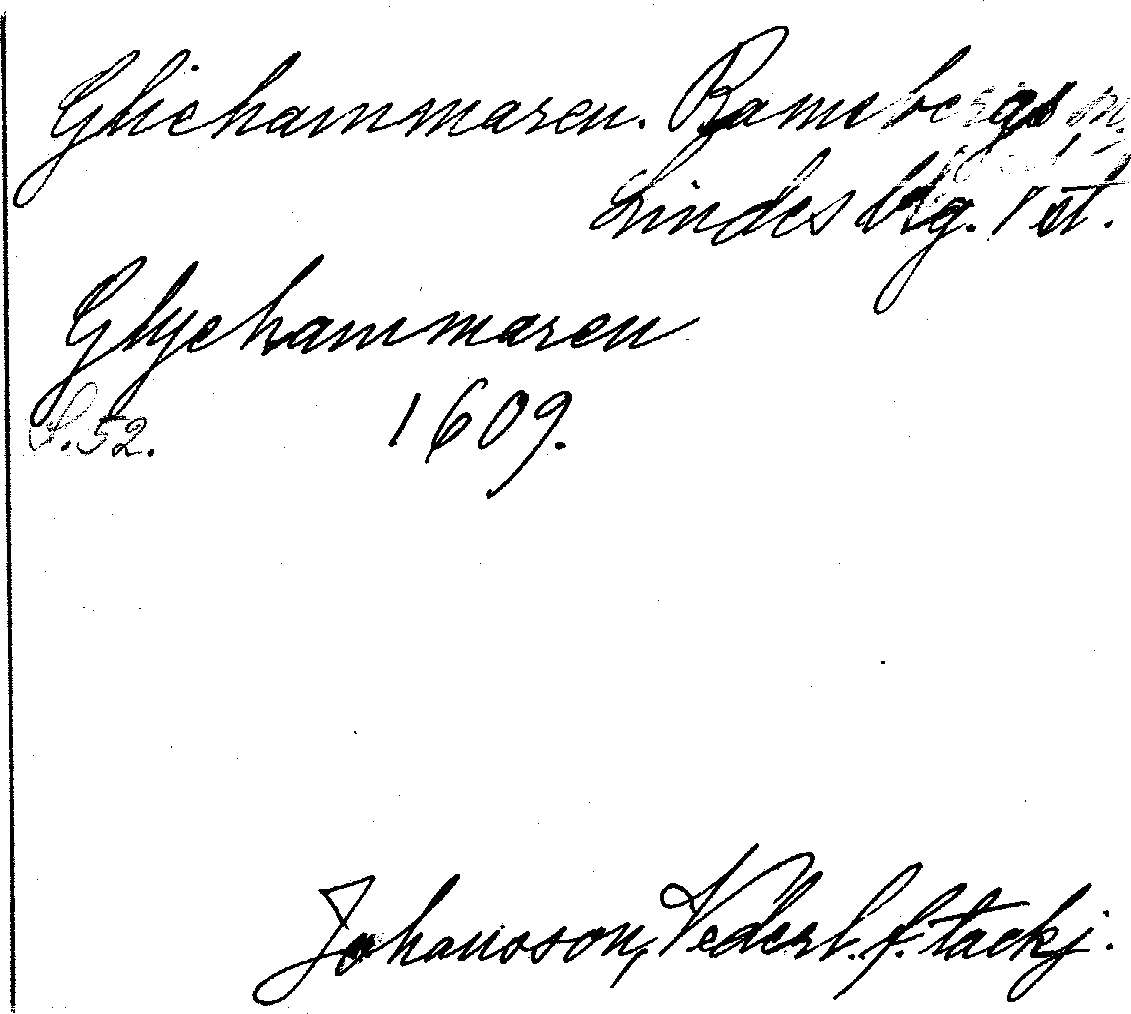 Gliehammaren. Ramsbergs
Lindes blg. Vst.
Glyehammaren
S. 52. 1609.
Johansson, Vederl. f. tackj.